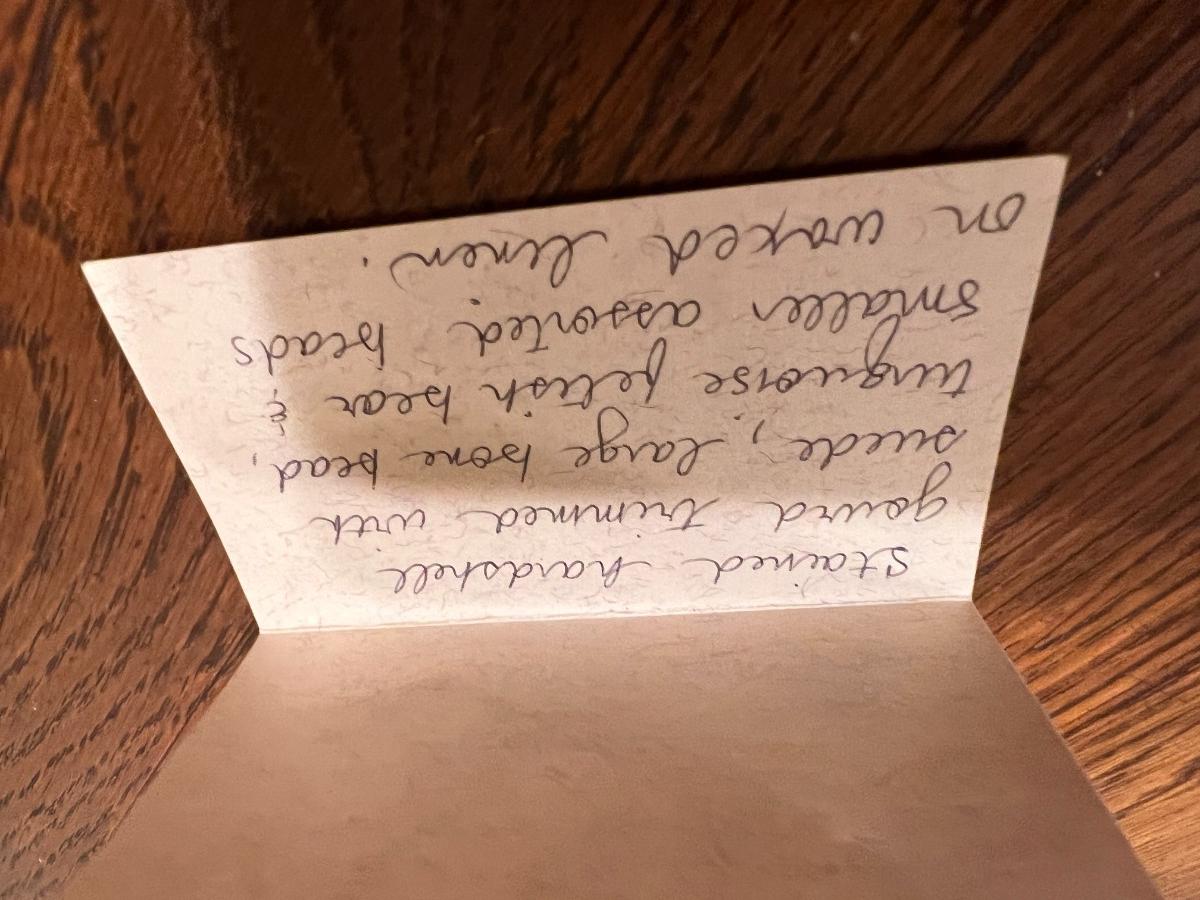 Stained hardshell
gourd trimmed with
suede, large bone bead,
turquoise fetish bear &
smaller assorted beads
on waxed linen.